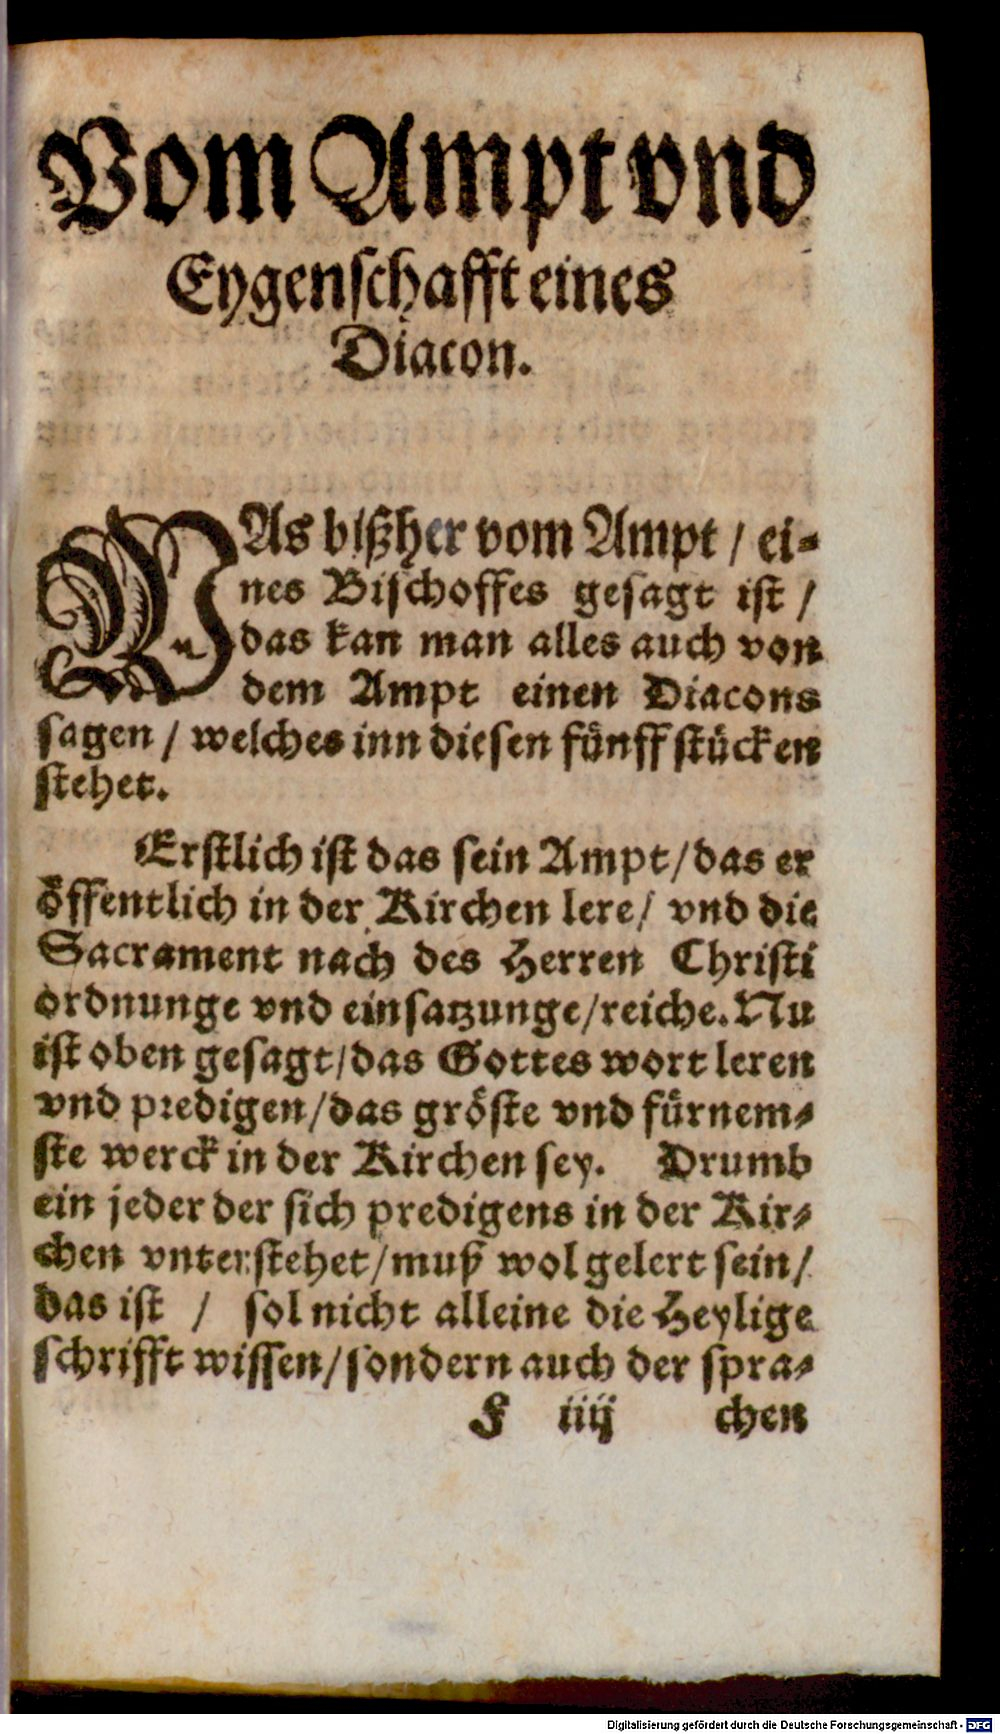 Vom Ampt vnd
Eygenschafft eines
Diacon.
WAs bißher vom Ampt / ei-
nes Bischoffes gesagt ist /
das kan man alles auch von
dem Ampt einen Diacons
sagen / welches inn diesen fünff stücken
stehet.
Erstlich ist das sein Ampt / das er
öffentlich in der Kirchen lere / vnd die
Sacrament nach des Herren Christi
ordnunge vnd einsatzunge / reiche. Nu
ist oben gesagt / das Gottes wort leren
vnd predigen / das gröste vnd fürnem-
ste werck in der Kirchen sey. Drumb
ein jeder der sich predigens in der Kir-
chen vnterstehet / muß wol gelert sein /
das ist / sol nicht alleine die Heylige
schrifft wissen / sondern auch der spra-
F iiij chen
Digitalisierung gefördert durch die Deutsche Forschungsgemeinschaft - DFG